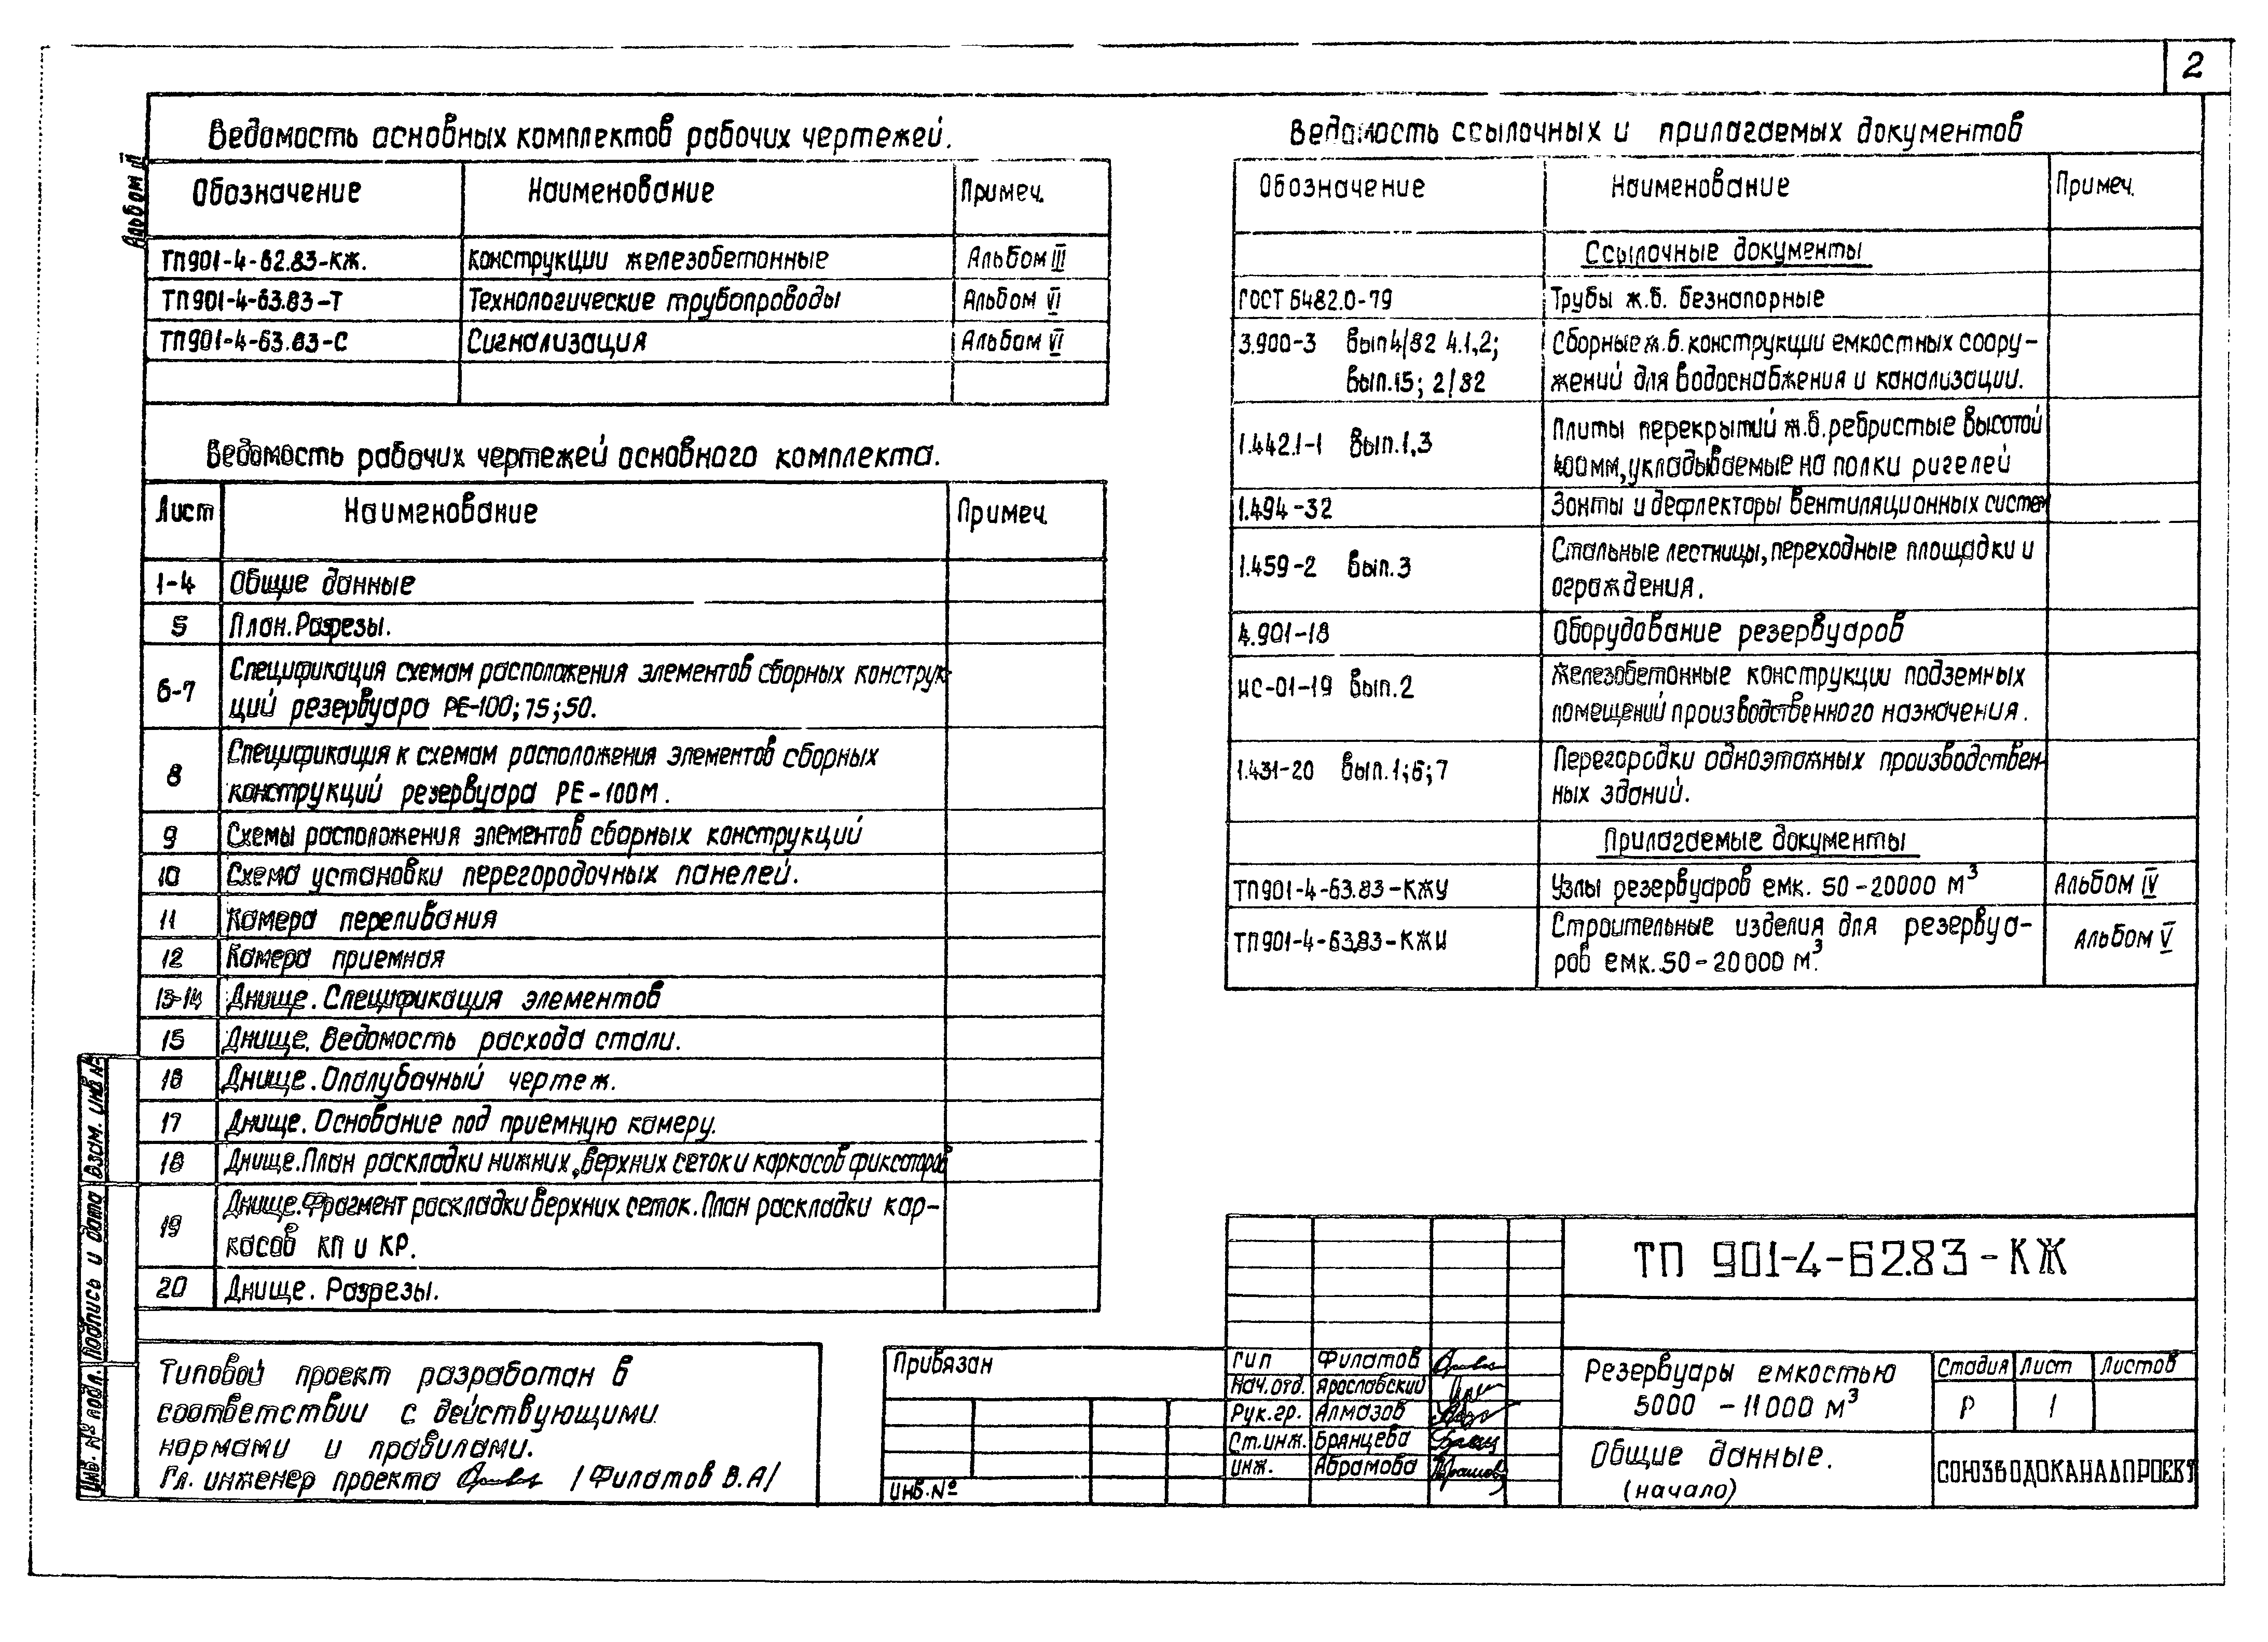 2
Альбом III
Ведомость основных комплектов рабочих чертежей.
Обозначение Наименование Примеч.
ТП901-4-62.83-КЖ. Конструкции железобетонные Альбом III
ТП901-4-63.83-Т Технологические трубопроводы Альбом VI
ТП901-4-63.83-С Сигнализация Альбом VI
Ведомость рабочих чертежей основного комплекта.
Лист Наименование Примеч.
1-4 Общие данные
5 План.Разрезы.
6-7 Спецификация схемам расположения элементов сборных конструк-
ций резервуара РЕ-100; 75; 50.
8 Спецификация к схемам расположения элементов сборных
конструкций резервуара РЕ-100М.
9 Схемы расположения элементов сборных конструкций
10 Схема установки перегородочных панелей.
11 Камера переливания
12 Камера приемная
13-14 Днище. Спецификация элементов
15 Днище. Ведомость расхода стали.
16 Днище. Опалубочный чертеж.
17 Днище. Основание под приемную камеру.
18 Днище.План раскладки нижних, верхних сеток и каркасов фиксаторов
19 Днище.Фрагмент раскладки верхних сеток. План раскладки кар-
касов КП и КР.
20 Днище. Разрезы.
Ведомость ссылочных и прилагаемых документов
Обозначение Наименование Примеч.
Ссылочные документы
ГОСТ 6482.0-79 Трубы ж.б. безнапорные
3.900-3 вып4/82 ч.1,2; Сборные ж.б. конструкции емкостных соору-
вып.15; 2/82 жений для водоснабжения и канализации.
1.442.1-1 вып.1,3 Плиты перекрытий ж.б. ребристые высотой
400мм, укладываемые на полки ригелей
1.494-32 Зонты и дефлекторы вентиляционных систем
1.459-2 вып.3 Стальные лестницы, переходные площадки и
ограждения.
4.901-18 Оборудование резервуаров
ИС-01-19 вып.2 Железобетонные конструкции подземных
помещений производственного назначения.
1.431-20 вып.1;6;7 Перегородки одноэтажных производствен-
ных зданий.
Прилагаемые документы
ТП901-4-63.83-КЖУ Узлы резервуаров емк. 50-20000 м³ Альбом IV
ТП901-4-63.83-КЖИ Строительные изделия для резервуа-
ров емк. 50-20000 м³. Альбом V
Инв. № подл. Подпись и дата Взам. инв №
Типовой проект разработан в
соответствии с действующими
нормами и правилами.
Гл. инженер проекта /Филатов В.А/
Привязан
Инв. №
ГИП Филатов
Нач.отд. Ярославский
Рук.гр. Алмазов
Ст.инж. Брянцева
Инж. Абрамова
ТП 901-4-62.83-КЖ
Резервуары емкостью
5000 - 11000 м³
Стадия Лист Листов
Р 1
Общие данные.
(начало)
СОЮЗВОДОКАНАЛПРОЕКТ